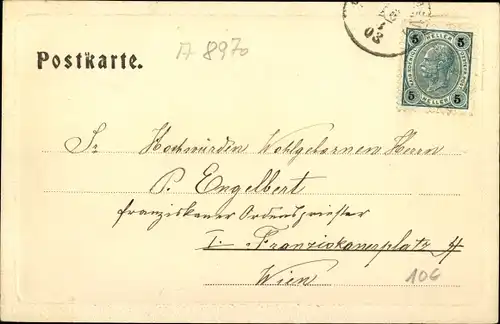 A 8970
Postkarte.
5 HELLER 5
5 HELLER 5
Sr Hochwürden Wohlgebornen Herrn
P. Engelbert
franziskaner Ordenspriester
I. Franziskanerplatz 4
Wien
106